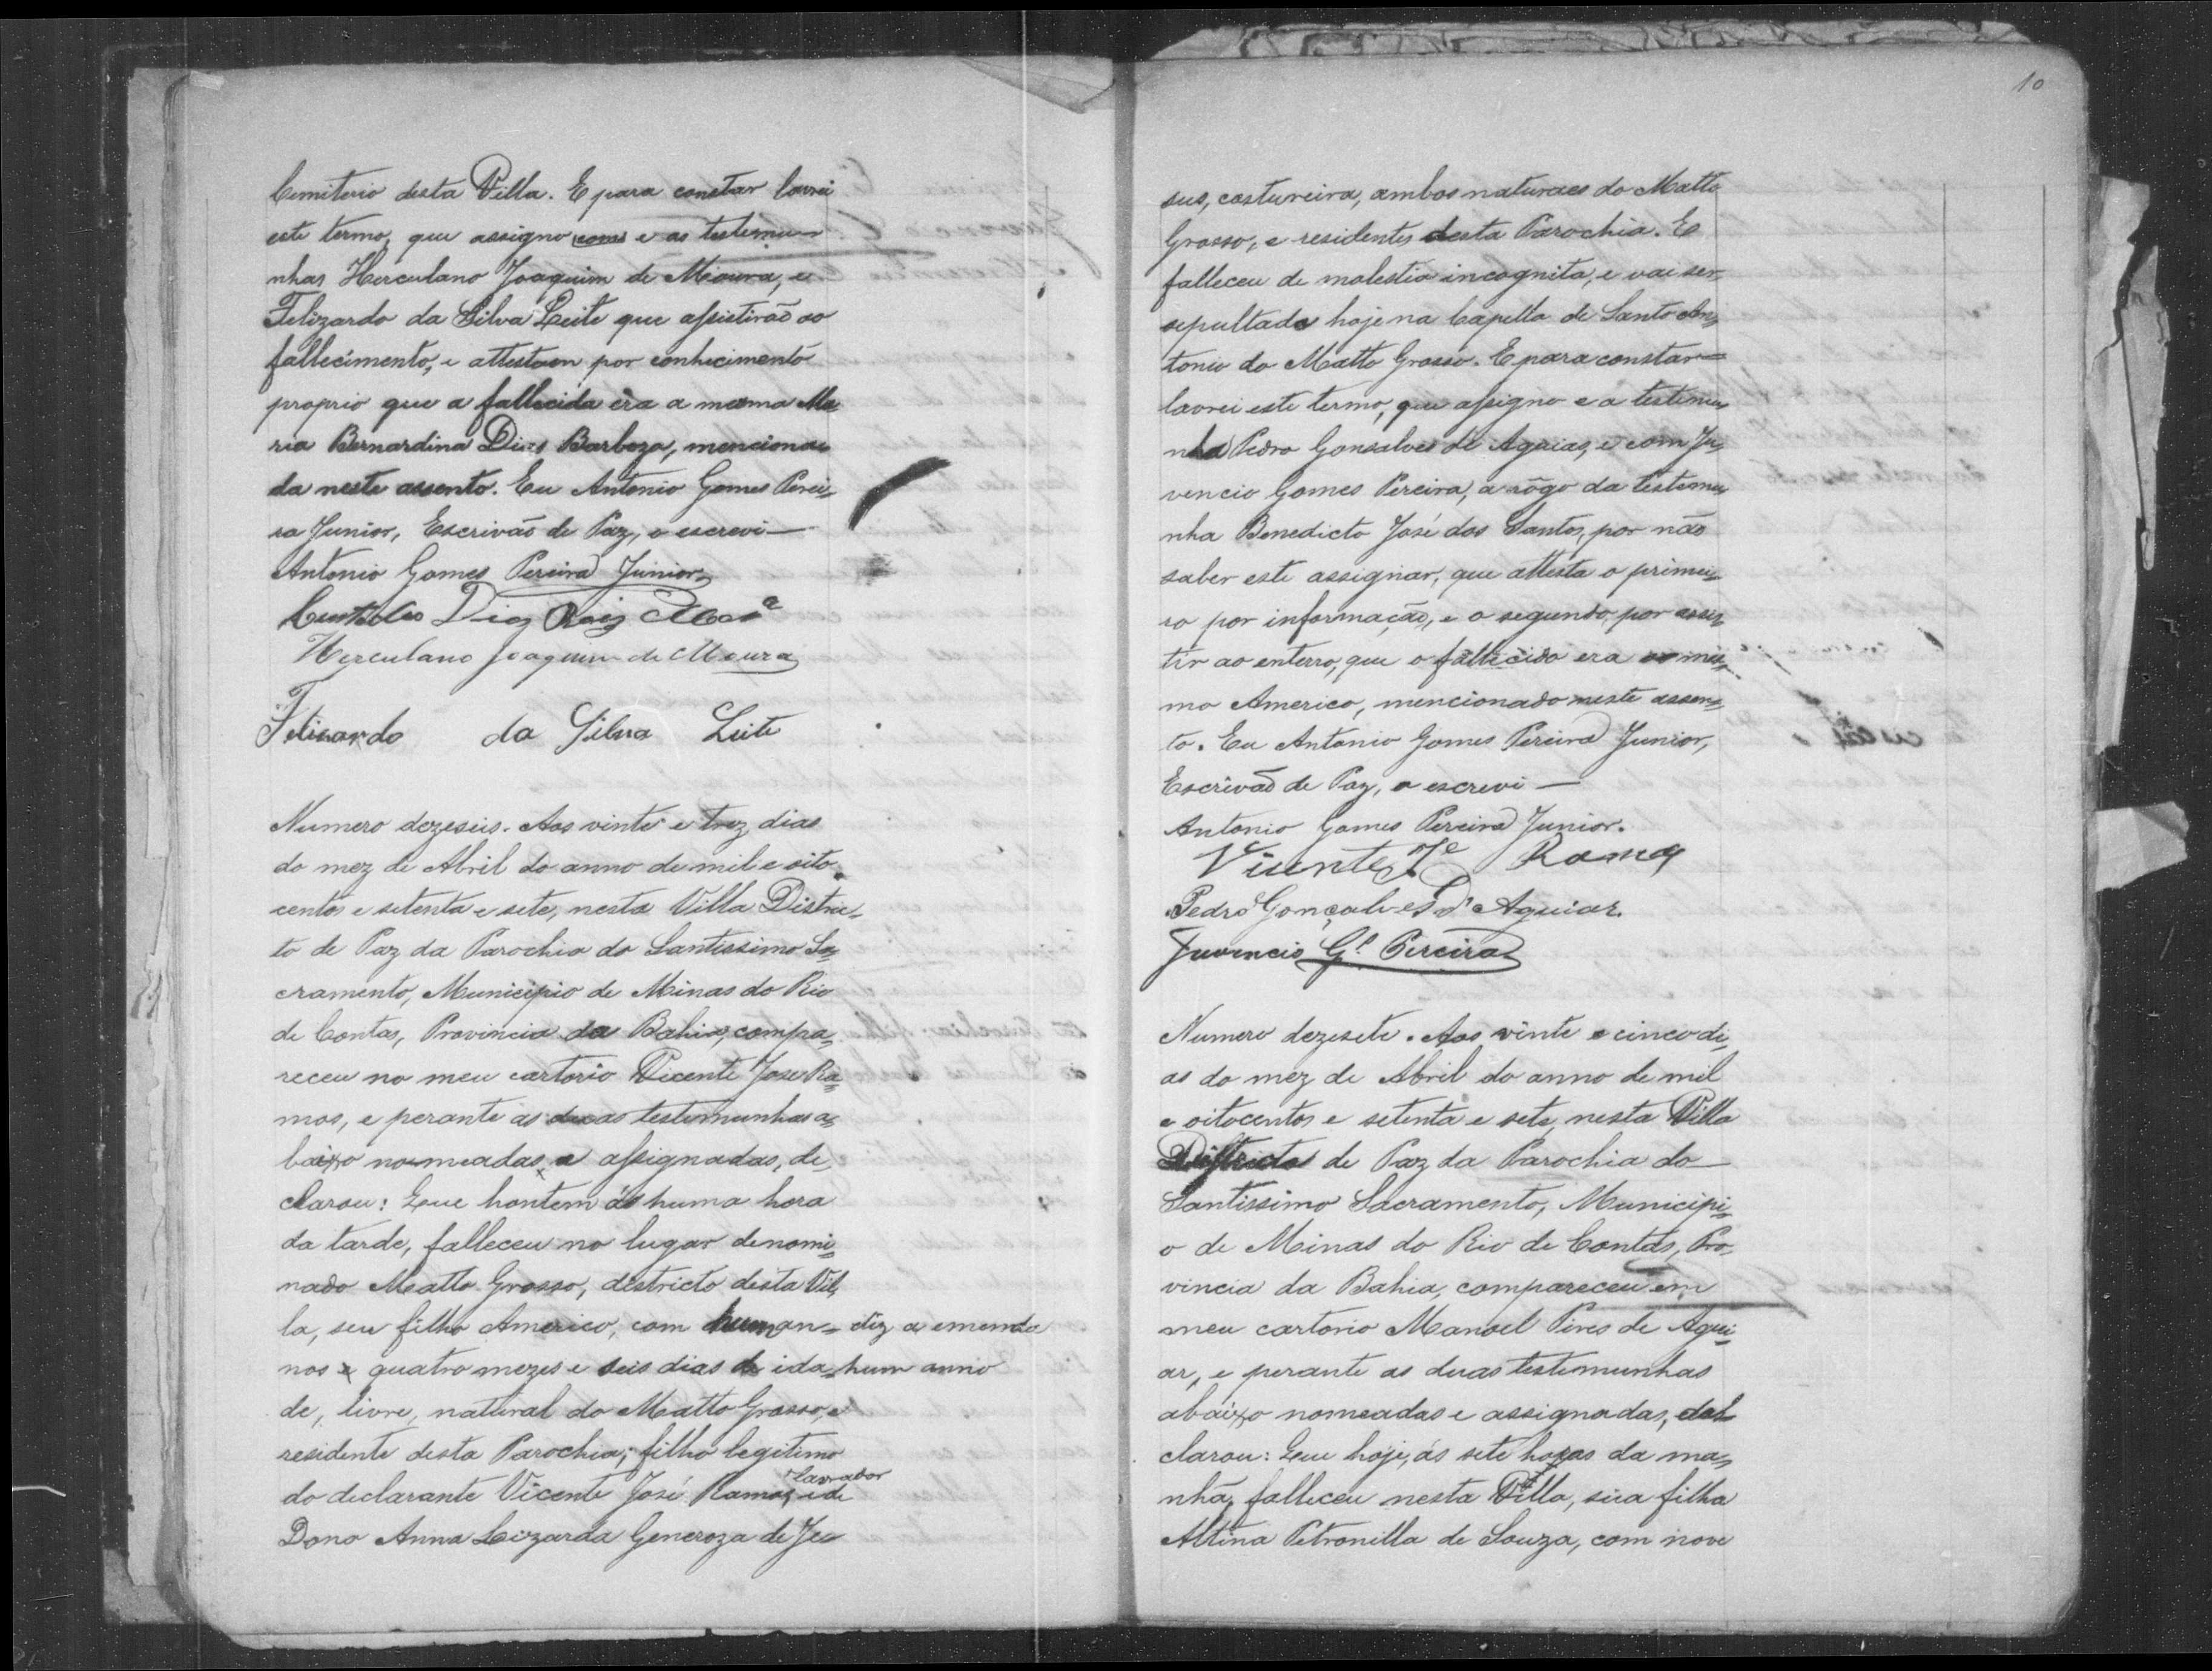 Cemiterio desta Villa. E para constar lavrei
este termo, que assigno com e as testimu-
nhas Herculano Joaquim de Moura, e
Felizardo da Silva Leite que assistirão ao
fallecimento, e attestam por conhecimento
proprio que a fallecida era a mesma Ma
ria Bernardina Dias Barboza, menciona-
da neste assento. Eu Antonio Gomes Perei-
ra Junior, Escrivão de Paz, o escrevi—
Antonio Gomes Pereira Junior
Dias
Herculano Joaquim de Moura
Felisardo da Silva Leite
Numero dezeseis. Aos vinte e trez dias
do mez de Abril do anno de mil e oito-
centos e setenta e sete, nesta Villa Distric-
to de Paz da Parochia do Santissimo Sa-
cramento, Municipio de Minas do Rio
de Contas, Provincia da Bahia, compa-
receu no meu cartorio Vicente José Ra-
mos, e perante as duas testemunhas a-
baixo nomeadas, e assignadas, de-
clarou: Que hontem ás huma hora
da tarde, falleceu no lugar denomi-
nado Matto Grosso, districto desta Vil-
la, seu filho Americo, com hum an- diz a emenda
nos e quatro mezes e seis dias de ida- hum anno
de, livre, natural do Matto Grosso, e
residente desta Parochia; filho legitimo
do declarante Vicente José Ramos, lavrador e de
Dona Anna Lizarda Generoza de Je-
10
sus, costureira, ambos naturaes do Matto
Grosso, e residentes desta Parochia. E
falleceu de molestia incognita, e vai ser
sepultado hoje na Capella de Santo An-
tonio do Matto Grosso. E para constar—
lavrei este termo, que assigno e a testimu-
nha Pedro Gonsalves de Aguiar, e com Ju-
vencio Gomes Pereira, a rôgo da testemu-
nha Benedicto José dos Santos, por não
saber este assignar, que attesta o primei-
ro por informação, e o segundo, por assis-
tir ao enterro, que o fallecido era o mes-
mo Americo, mencionado neste assen-
to. Eu Antonio Gomes Pereira Junior,
Escrivão de Paz, o escrevi—
Antonio Gomes Pereira Junior.
Vicente Je Ramos
Pedro Gonçalves d'Aguiar.
Juvencio Gs. Pereira
Numero dezesete. Aos vinte e cinco di-
as do mez de Abril do anno de mil
e oitocentos e setenta e sete, nesta Villa
Districto de Paz da Parochia do—
Santissimo Sacramento, Municipi-
o de Minas do Rio de Contas, Pro-
vincia da Bahia, compareceu em
meu cartorio Manoel Pires de Agui-
ar, e perante as duas testemunhas
abaixo nomeadas e assignadas, de-
clarou: Que hoje, ás sete horas da ma-
nhã, falleceu nesta Villa, sua filha
Altina Petronilla de Souza, com nove